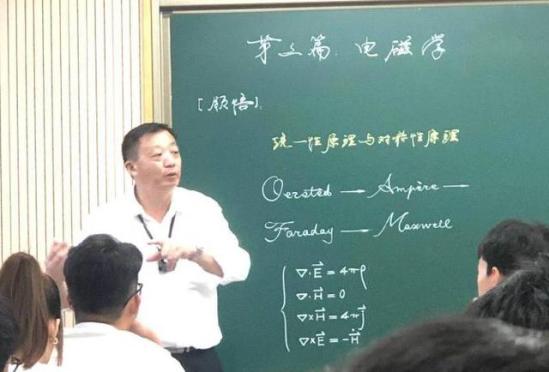 第三篇. 电磁学
[顾悟].
统一性原理与对称性原理
Oersted → Ampère —
Faraday → Maxwell
∇·E⃗ = 4πρ
∇·H⃗ = 0
∇×H⃗ = 4πj⃗
∇×E⃗ = -Ḣ⃗